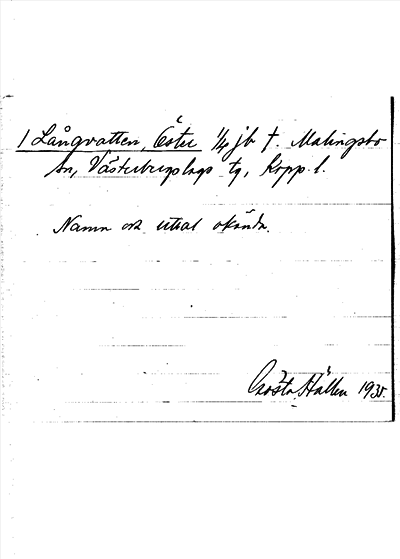 1 Långvatten, Öster 1/4 jb †. Malingsbo
sn, Västerbergslags tg, Kopp. l.
Namn och uttal okända.
Gösta Hallén 1935.